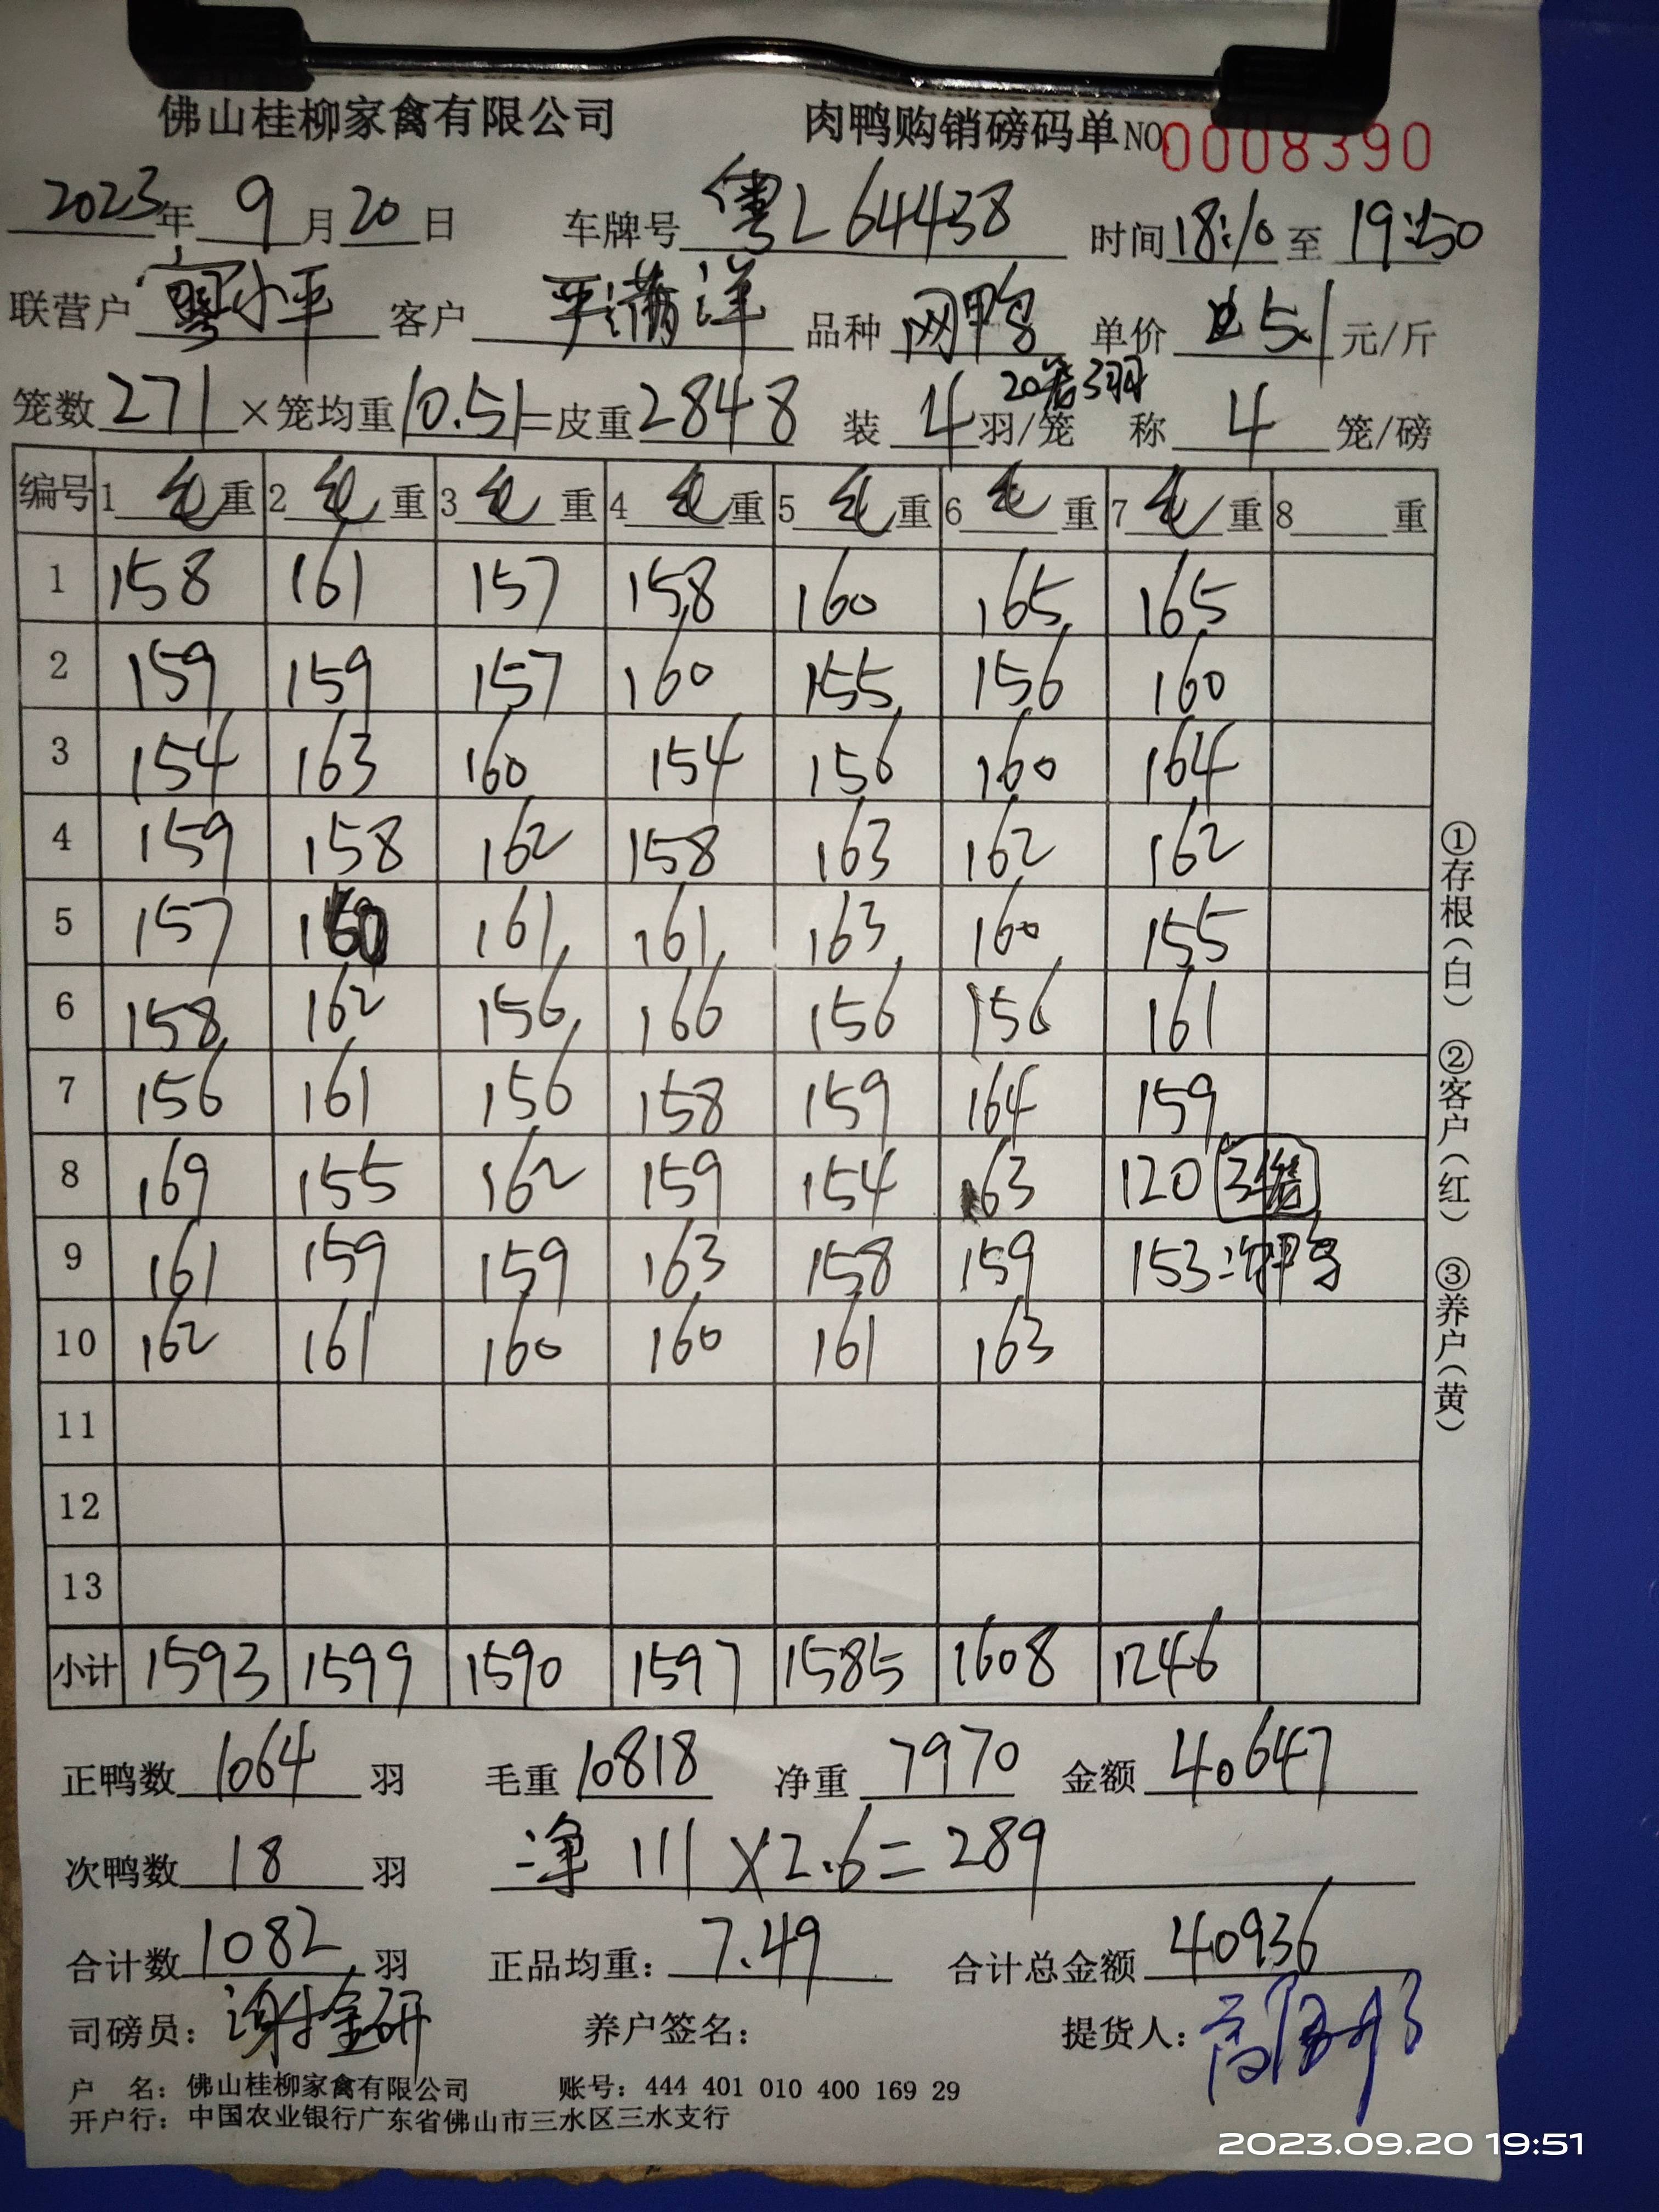 佛山桂柳家禽有限公司 肉鸭购销磅码单 NO 0008390
2023年 9月20日 车牌号 粤L64438 时间18:10至19:50
联营户 廖小平 客户 严满洋 品种 网鸭 单价 5.1 元/斤
20笼3羽
笼数271×笼均重10.51=皮重2848 装 4 羽/笼 称 4 笼/磅
编号 1 毛重 2 毛重 3 毛重 4 毛重 5 毛重 6 毛重 7 毛重 8 重
1 158 161 157 158 160 165 165
2 159 159 157 160 155 156 160
3 154 163 160 154 156 160 164
4 159 158 162 158 163 162 162
5 157 160 161 161 163 160 155
6 158 162 156 166 156 156 161
7 156 161 156 158 159 164 159
8 169 155 162 159 154 163 120 3笼
9 161 159 159 163 158 159 153次鸭
10 162 161 160 160 161 163
11
12
13
小计 1593 1599 1590 1597 1585 1608 1246
正鸭数 1064 羽 毛重 10818 净重 7970 金额 40647
次鸭数 18 羽 净 111×2.6=289
合计数 1082 羽 正品均重: 7.49 合计总金额 40936
司磅员: 谢金研 养户签名: 提货人:
户 名: 佛山桂柳家禽有限公司 账号: 444 401 010 400 169 29
开户行: 中国农业银行广东省佛山市三水区三水支行
①存根(白) ②客户(红) ③养户(黄)
2023.09.20 19:51